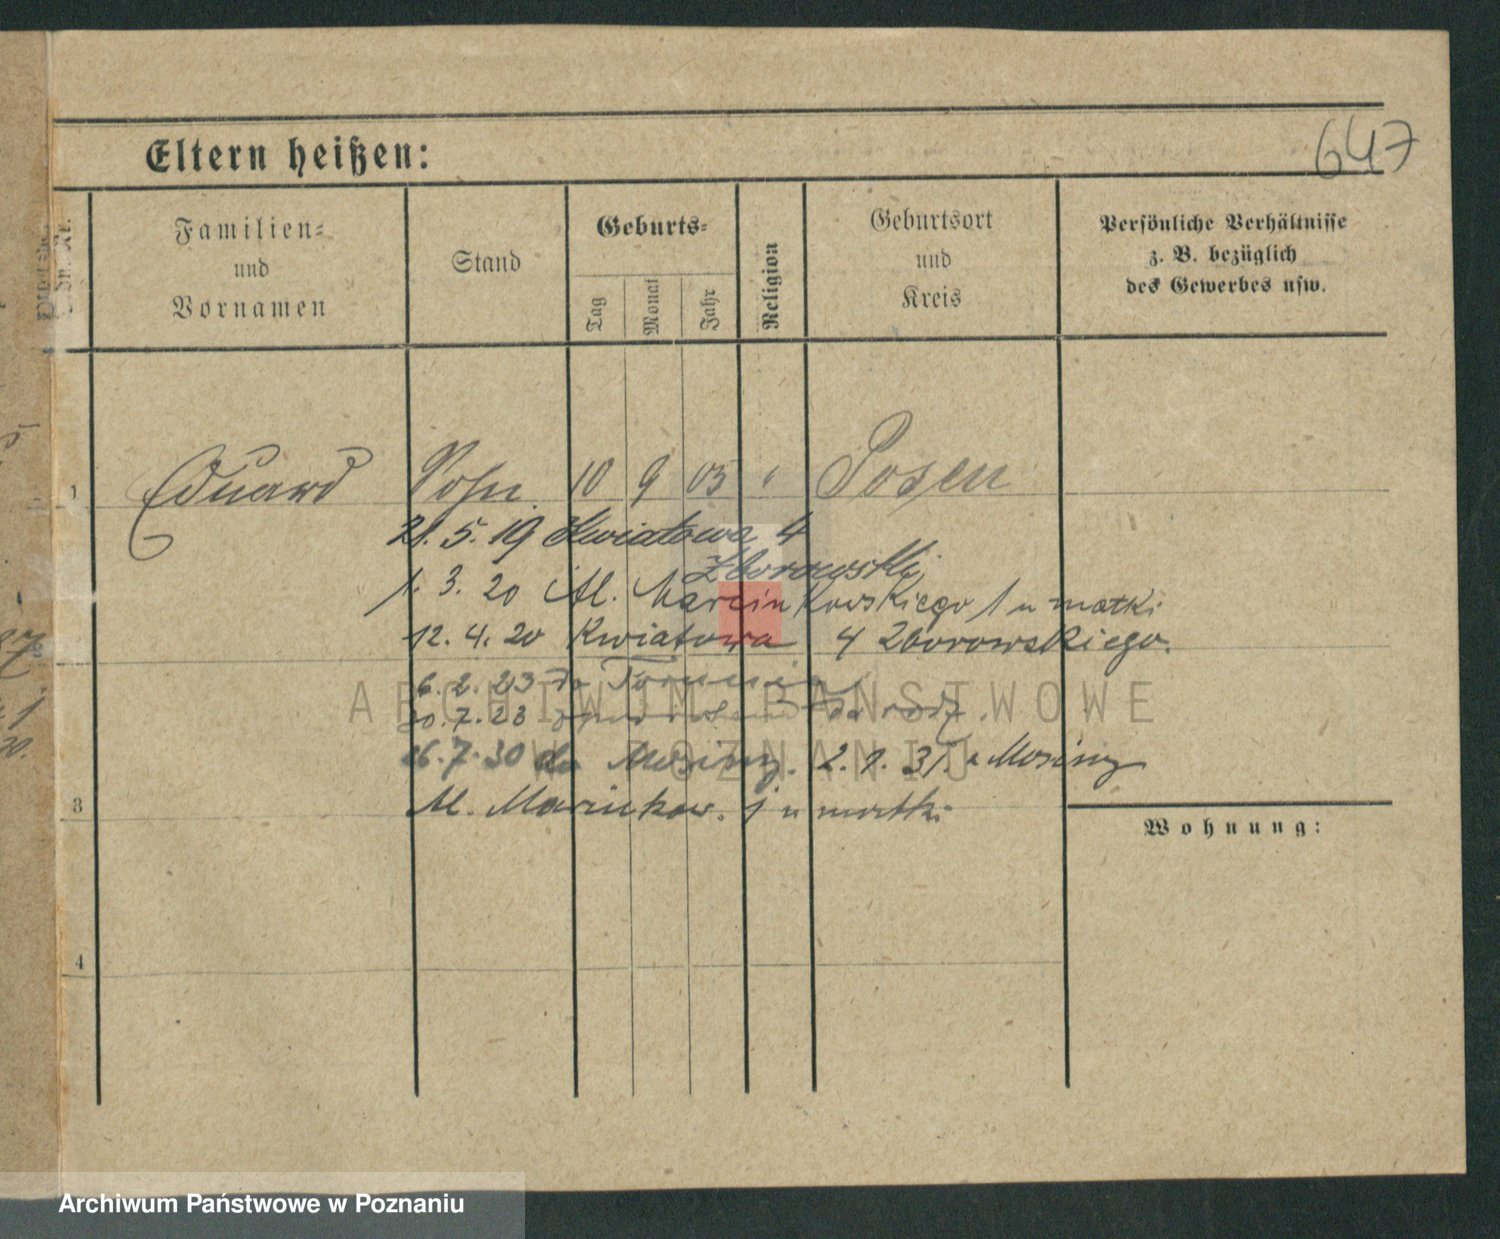 647
Eltern heißen:
Familien-
und
Vornamen
Stand
Geburts-
Tag
Monat
Jahr
Religion
Geburtsort
und
Kreis
Persönliche Verhältnisse
z. B. bezüglich
des Gewerbes usw.
1 Eduard Sohn 10 9 05 " Posen
21. 5. 19 Kwiatowa 4
Zborowski
1. 3. 20 Al. Marcinkowskiego 1 u matki
12. 4. 20 Kwiatowa 4 Zborowskiego.
6. 2. 23 do Torunia
30. 7. 23
16. 7. 30 do Mosiny. 2. 1. 31. z Mosiny
3 Al. Marcinkow. 1 u matki
Wohnung:
4
ARCHIWUM PAŃSTWOWE
W POZNANIU
Archiwum Państwowe w Poznaniu